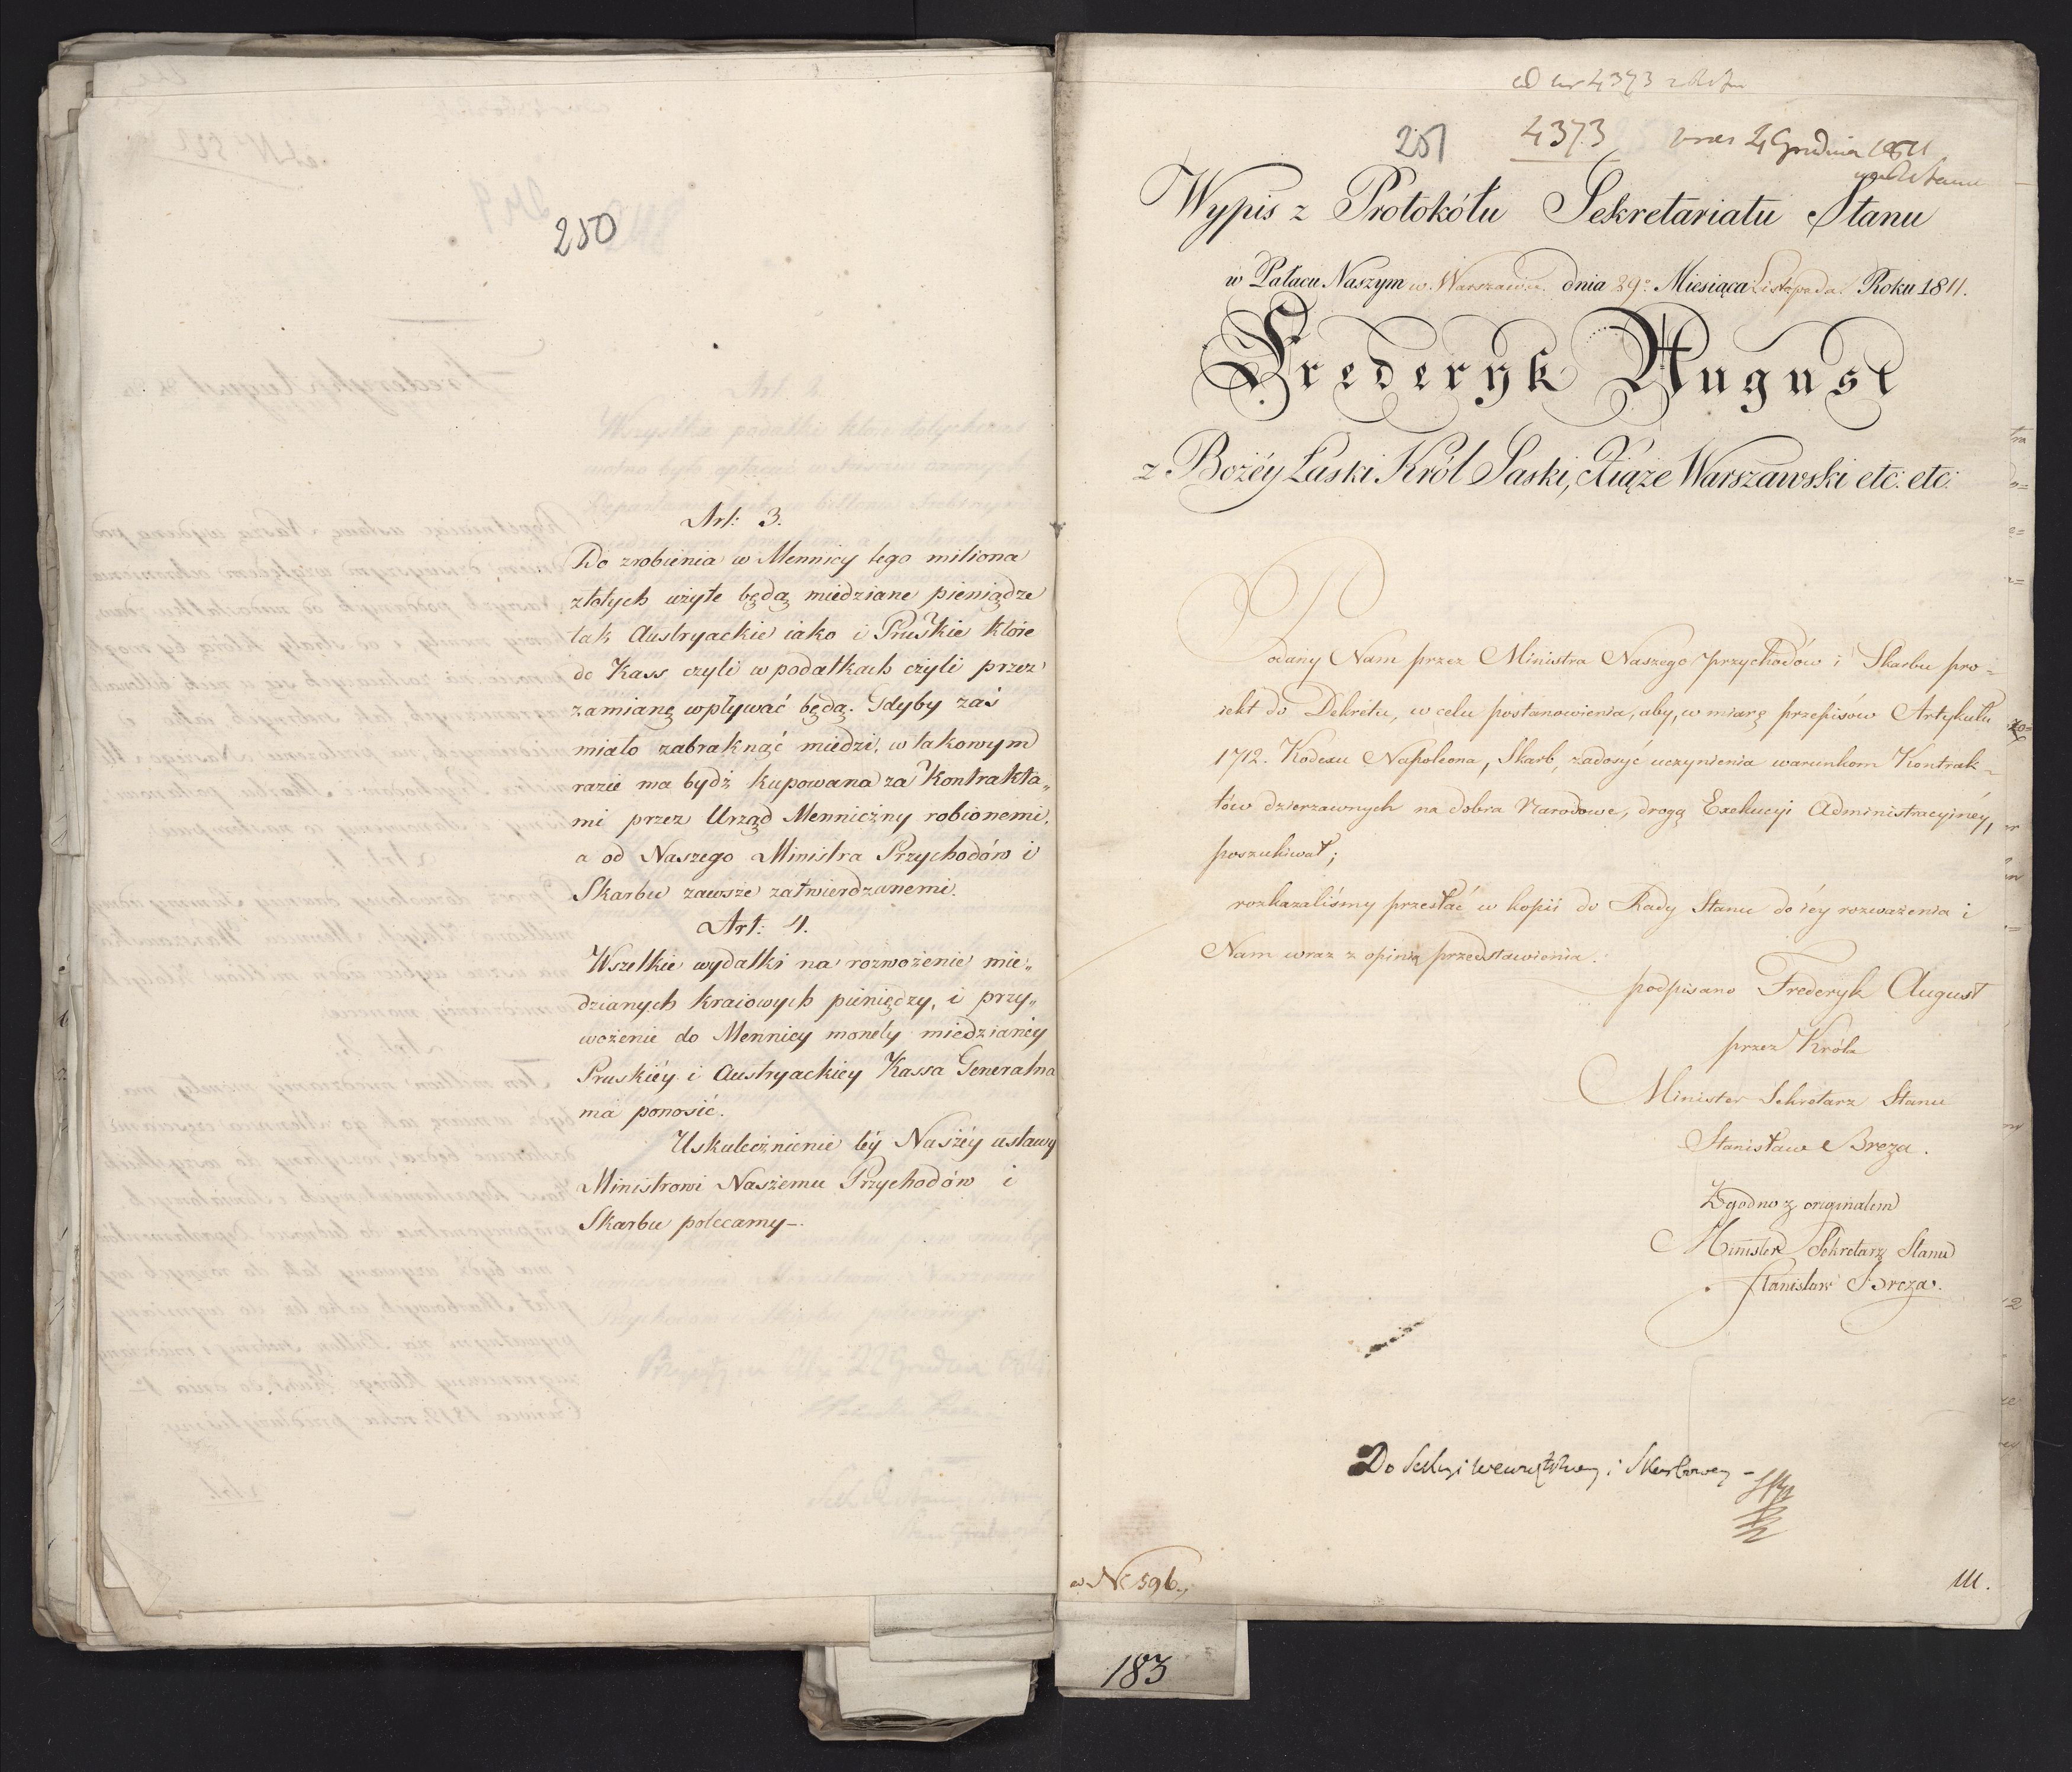 250
Art: 3.
Do zrobienia w Mennicy tego miliona
złotych użyte będą miedziane pieniądze
tak Austryackie iako i Pruskie które
do Kass czyli w podatkach czyli przez
zamianę wpływać będą. Gdyby zaś
miało zabraknąć miedzi, w takowym
razie ma bydź kupowana za Kontrakta„
mi przez Urząd Menniczny robionemi,
a od Naszego Ministra Przychodów i
Skarbu zawsze zatwierdzanemi.
Art: 4.
Wszelkie wydatki na rozwożenie mie„
dzianych kraiowych pieniędzy, i przy„
wożenie do Mennicy monety miedzianéy
Pruskiéy i Austryackiey Kassa Generalna
ma ponosić.
Uskutecznienie téy Naszéy ustawy
Ministrowi Naszemu Przychodów i
Skarbu polecamy-.
4373
251 4373 2 Grudnia 1811
Wypis z Protokółu Sekretariatu Stanu
w Pałacu Naszym w Warszawie dnia 29o Miesiąca Listopada Roku 1811.
Frederyk August
z Bożéy Łaski Król Saski, Xiąże Warszawski etc: etc:
Podany Nam przez Ministra Naszego Przychodów i Skarbu pro=
iekt do Dekretu, w celu postanowienia, aby, w miarę przepisów Artykułu
1712. Kodexu Napoleona, Skarb, zadosyć uczynienia warunkom Kontrak=
tów dzierzawnych na dobra Narodowe, drogą Exekucyi Administracyinéy,
poszukiwał;
rozkazaliśmy przesłać w kopii do Rady Stanu do iéy rozważenia i
Nam wraz z opinią przedstawienia.
podpisano Frederyk August
przez Króla
Minister Sekretarz Stanu
Stanisław Breza.
Zgodno z originałem
Minister Sekretarz Stanu
Stanisław Breza.
Do Sekcyi wewnętrzney i Skarbowey -
N: 596.
III.
183